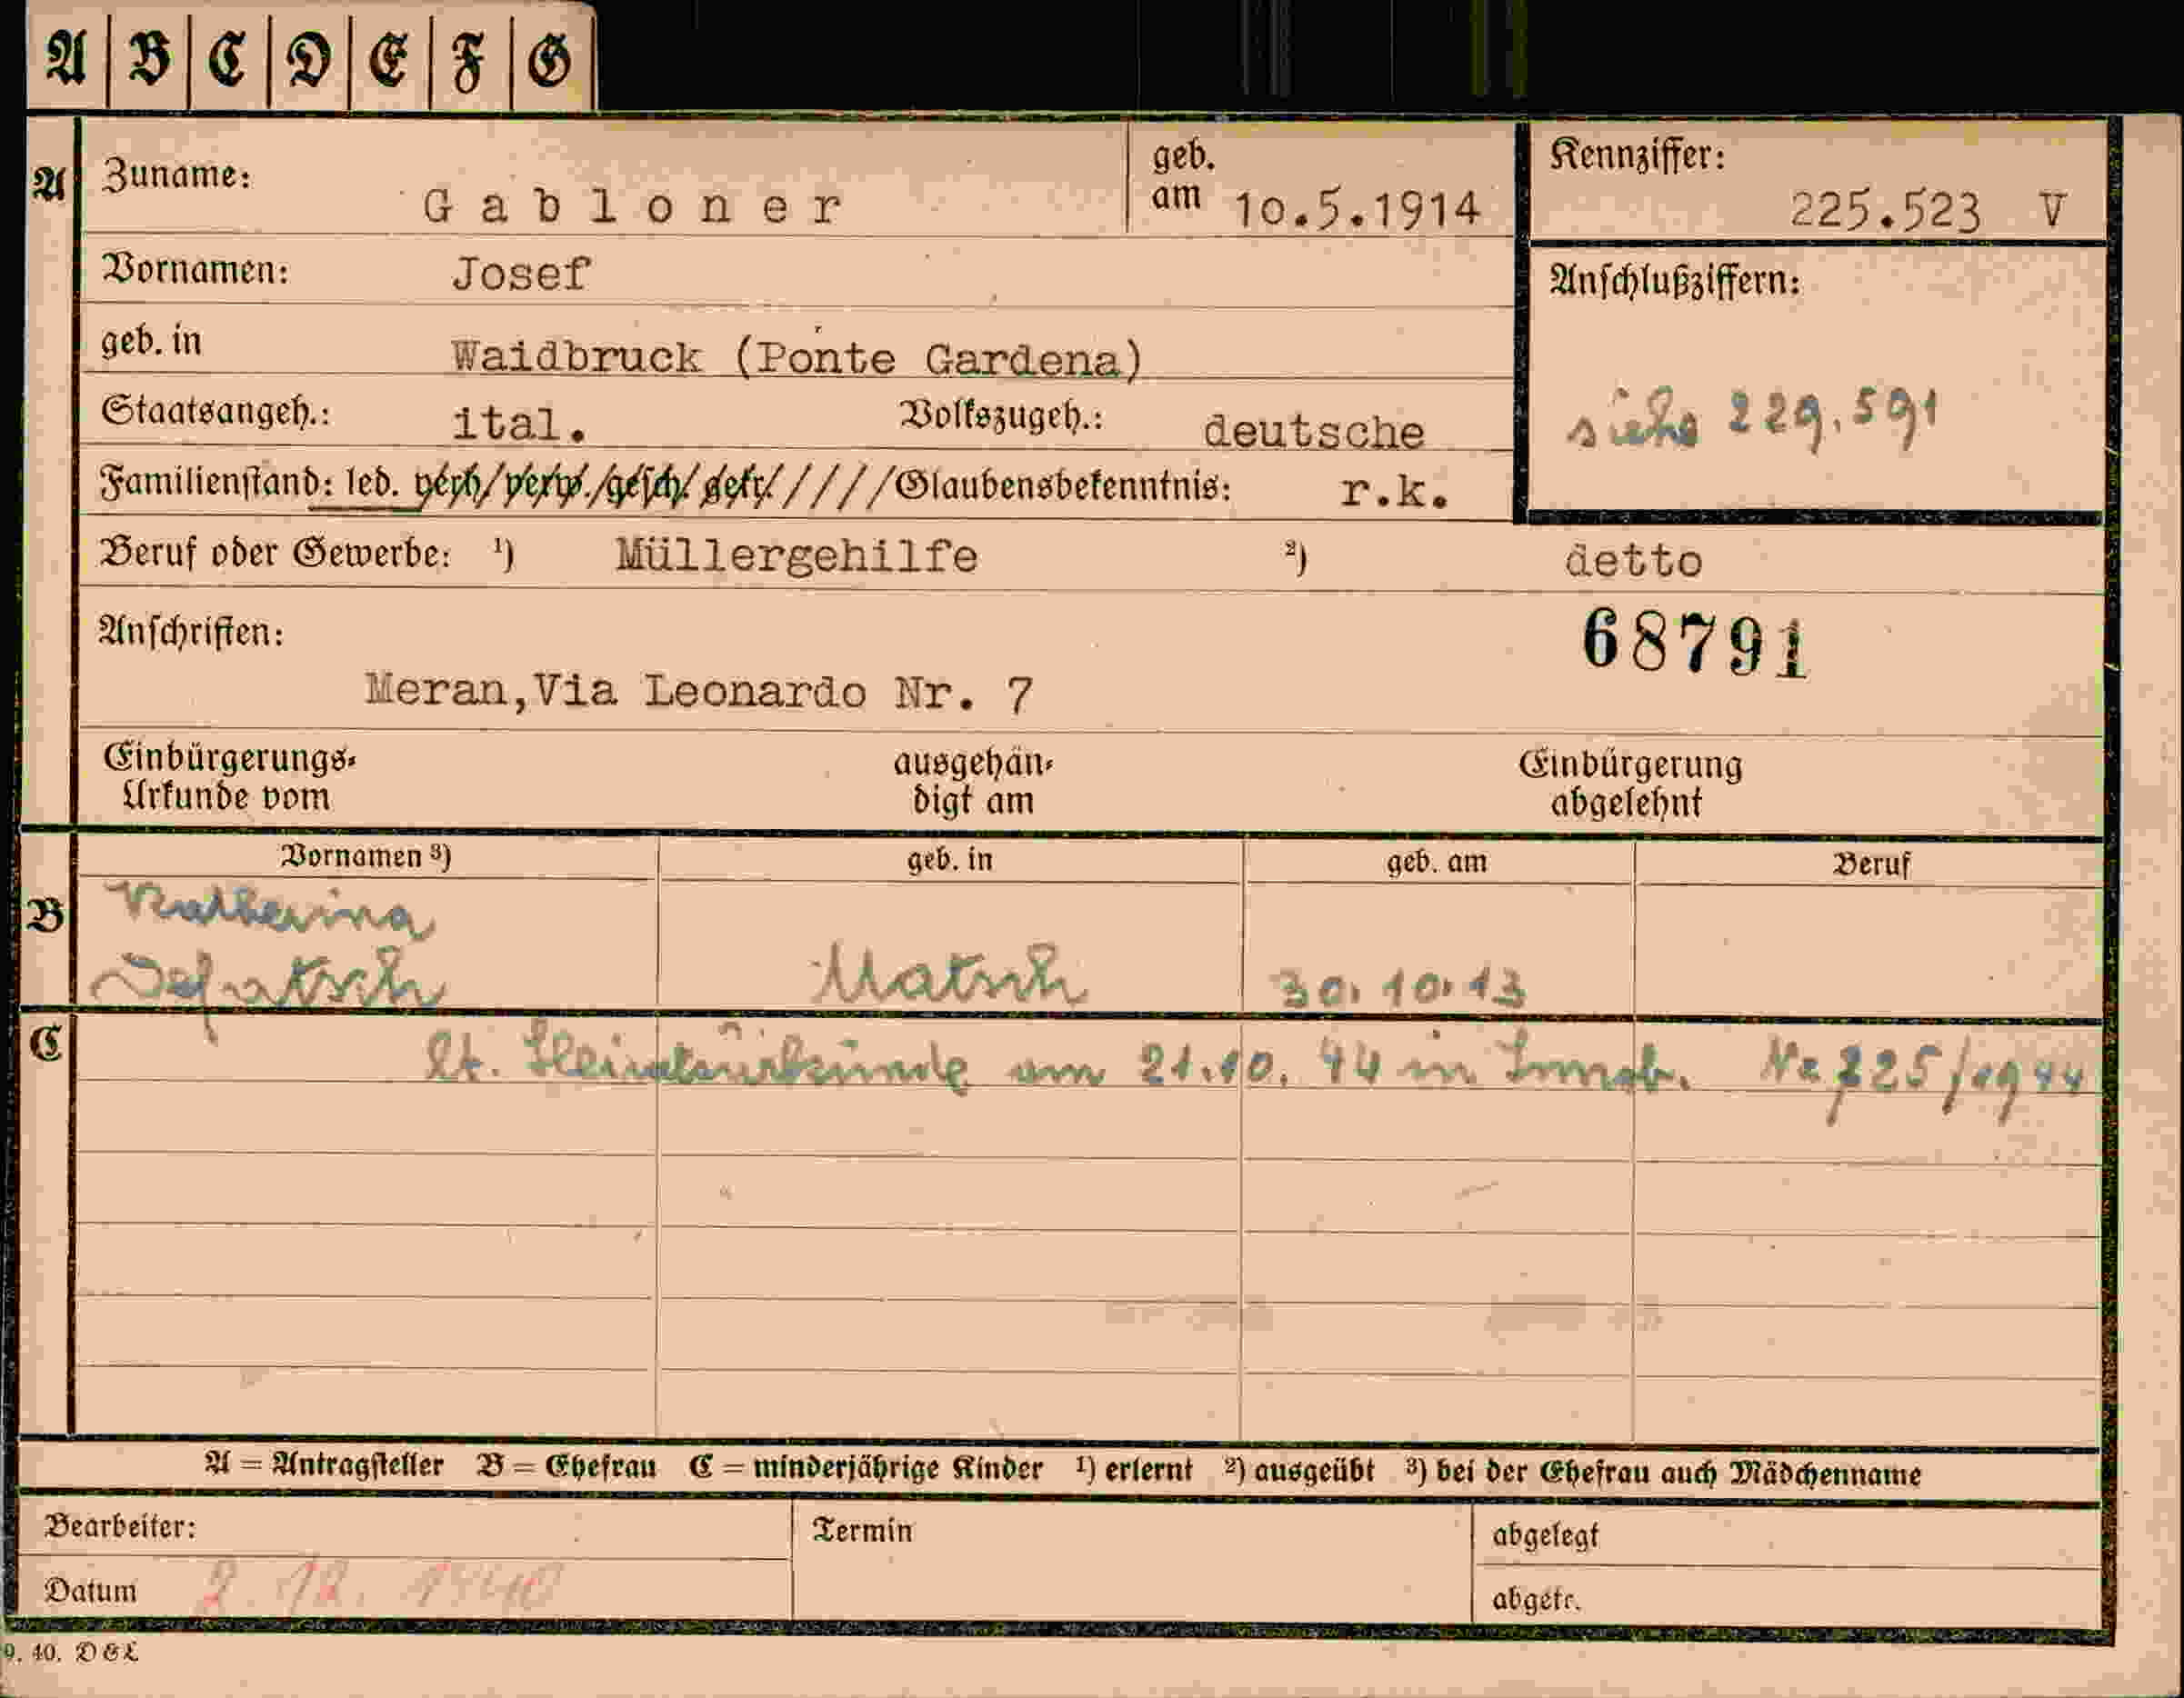 A B C D E F G
A Zuname: Gabloner geb. am 10.5.1914 Kennziffer: 225.523 V
Vornamen: Josef Anschlußziffern:
geb. in Waidbruck (Ponte Gardena)
Staatsangeh.: ital. Volkszugeh.: deutsche siehe 229.591
Familienstand: led. verh/verw./gesch/ getr./////Glaubensbekenntnis: r.k.
Beruf oder Gewerbe: ¹) Müllergehilfe ²) detto
Anschriften: 68791
Meran,Via Leonardo Nr. 7
Einbürgerungs- ausgehän- Einbürgerung
Urkunde vom digt am abgelehnt
Vornamen ³) geb. in geb. am Beruf
B Katherina
Matsch 30.10.13
C lt. Heiratsurkunde am 21.10.44 in Innsb. Nr 225/1944
A = Antragsteller B = Ehefrau C = minderjährige Kinder ¹) erlernt ²) ausgeübt ³) bei der Ehefrau auch Mädchenname
Bearbeiter: Termin abgelegt
Datum 2. 12. 1940 abgetr.
9. 40. DGL